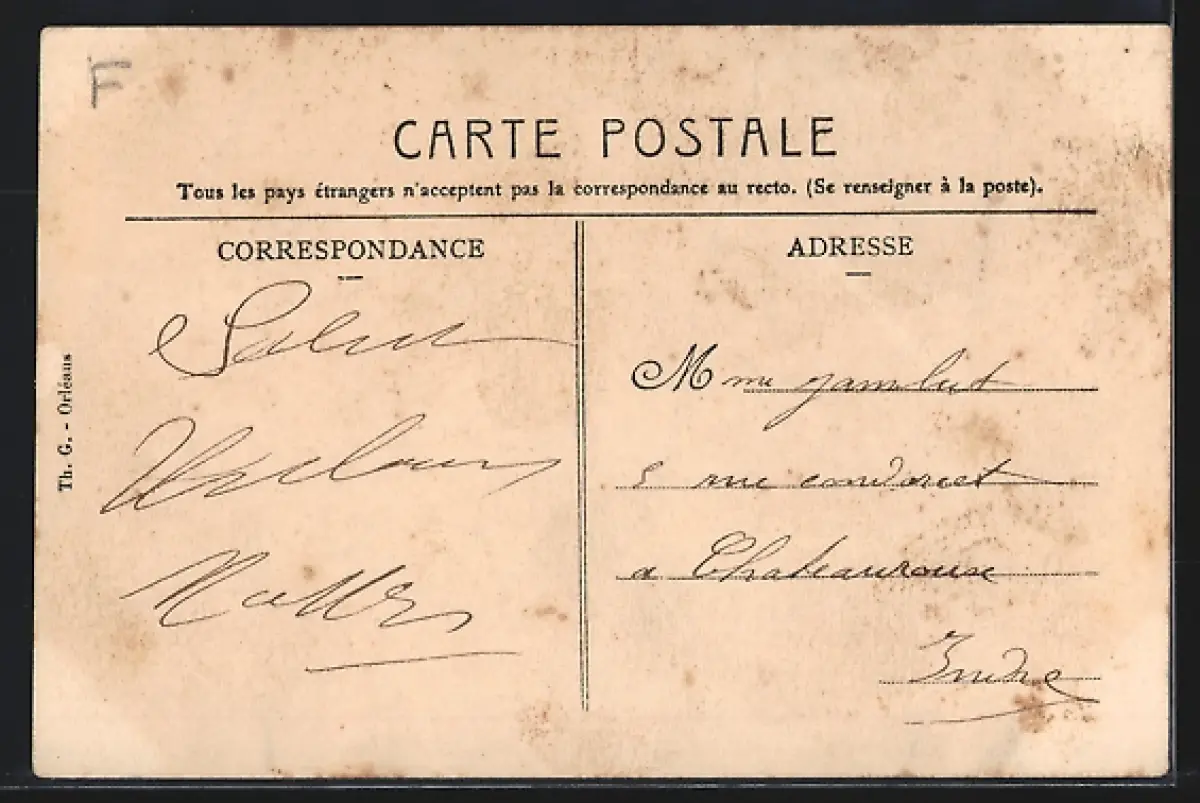 F
CARTE POSTALE
Tous les pays étrangers n'acceptent pas la correspondance au recto. (Se renseigner à la poste).
CORRESPONDANCE
Salut
ADRESSE
Mme
5 rue condorcet
a Chateauroux
Indre
Th. G. - Orléans